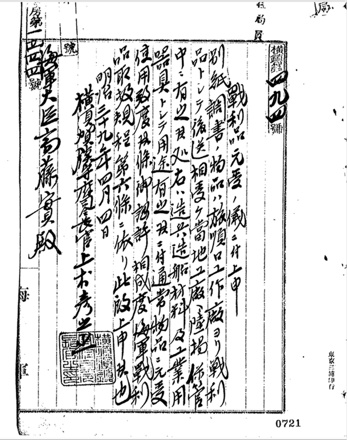 四九四號
戰利品元受ノ儀ニ付上申
別紙調書ノ物品ハ旅順口工作廠ヨリ戰利
品トシテ後送相受ケ當地工廠陸揚保管
中ニ有之候処右ハ造兵造船材料及工業用
器具トシテ用途有之候ニ付通常物品ニ元受
使用致度候條御認許相成度海軍戰利
品取扱規程第六條ニ依リ此段上申候也
明治三十九年四月四日
横須賀鎮守府司令長官上村彦之丞
海軍大臣斎藤實殿
號
海軍
0721